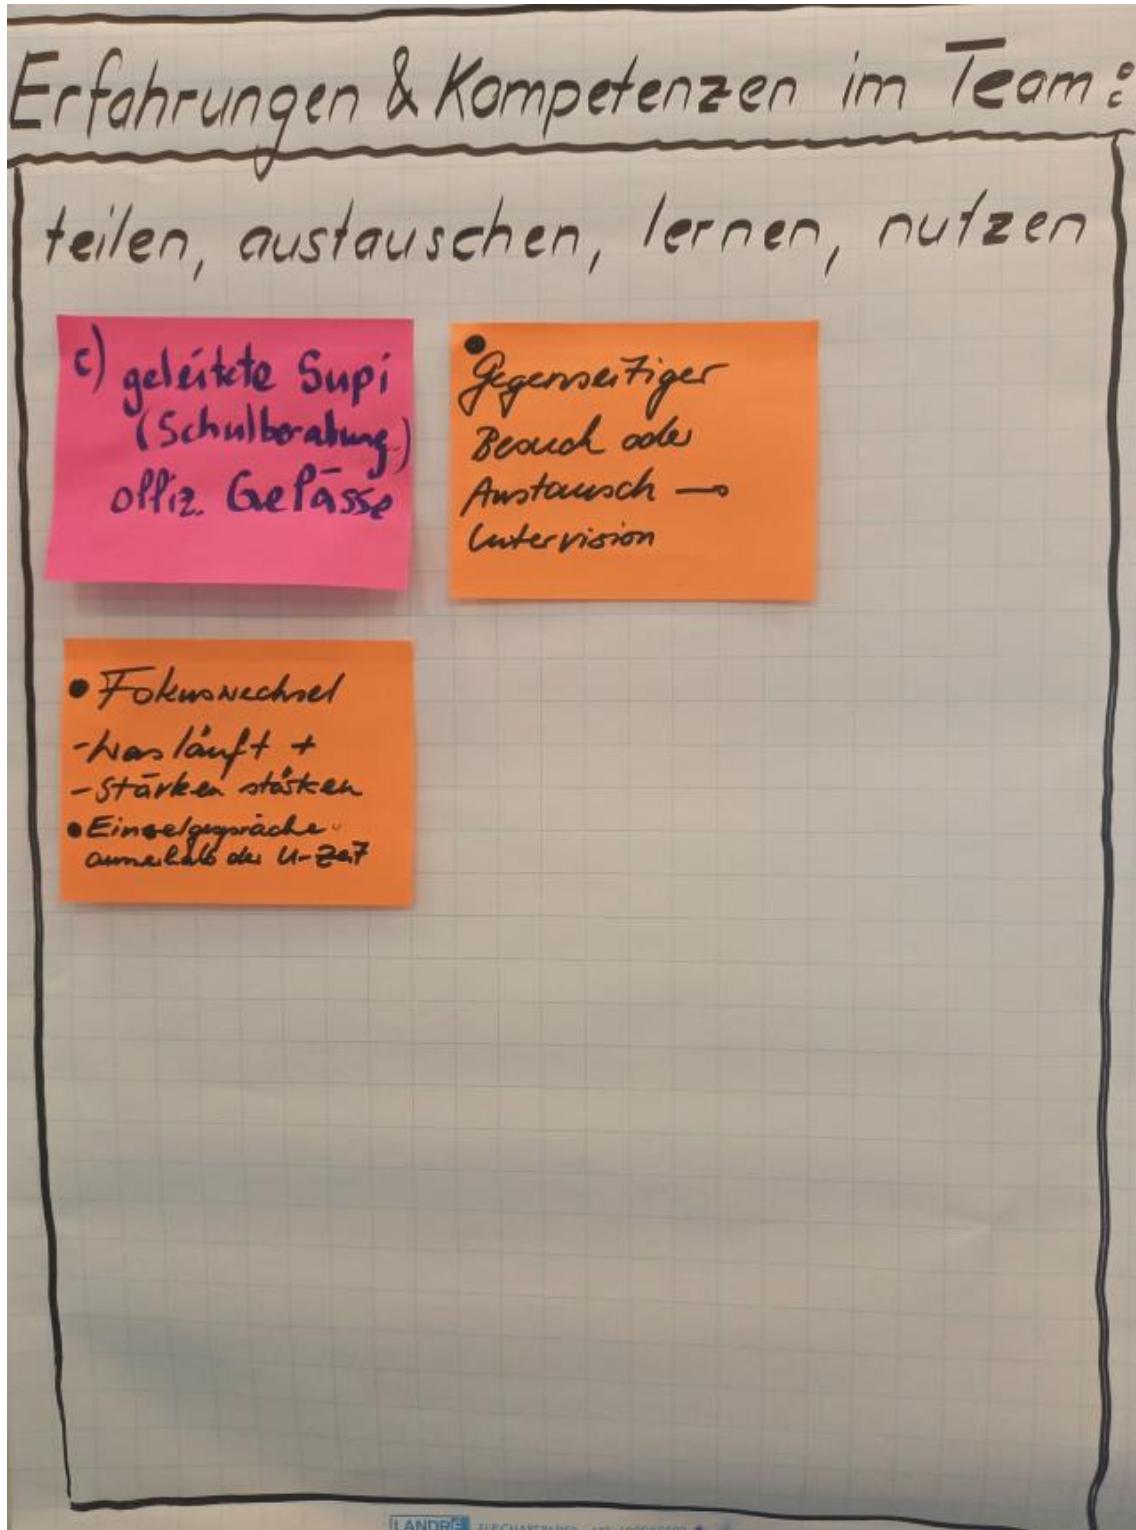 Erfahrungen & Kompetenzen im Team:
teilen, austauschen, lernen, nutzen
c) geleitete Supi
(Schulberatung)
offiz. Gefässe
• Gegenseitiger
Besuch oder
Austausch →
Intervision
• Fokuswechsel
- Was läuft +
- Stärken stärken
• Einzelgespräche
ausserhalb der U-Zeit
LANDRÉ